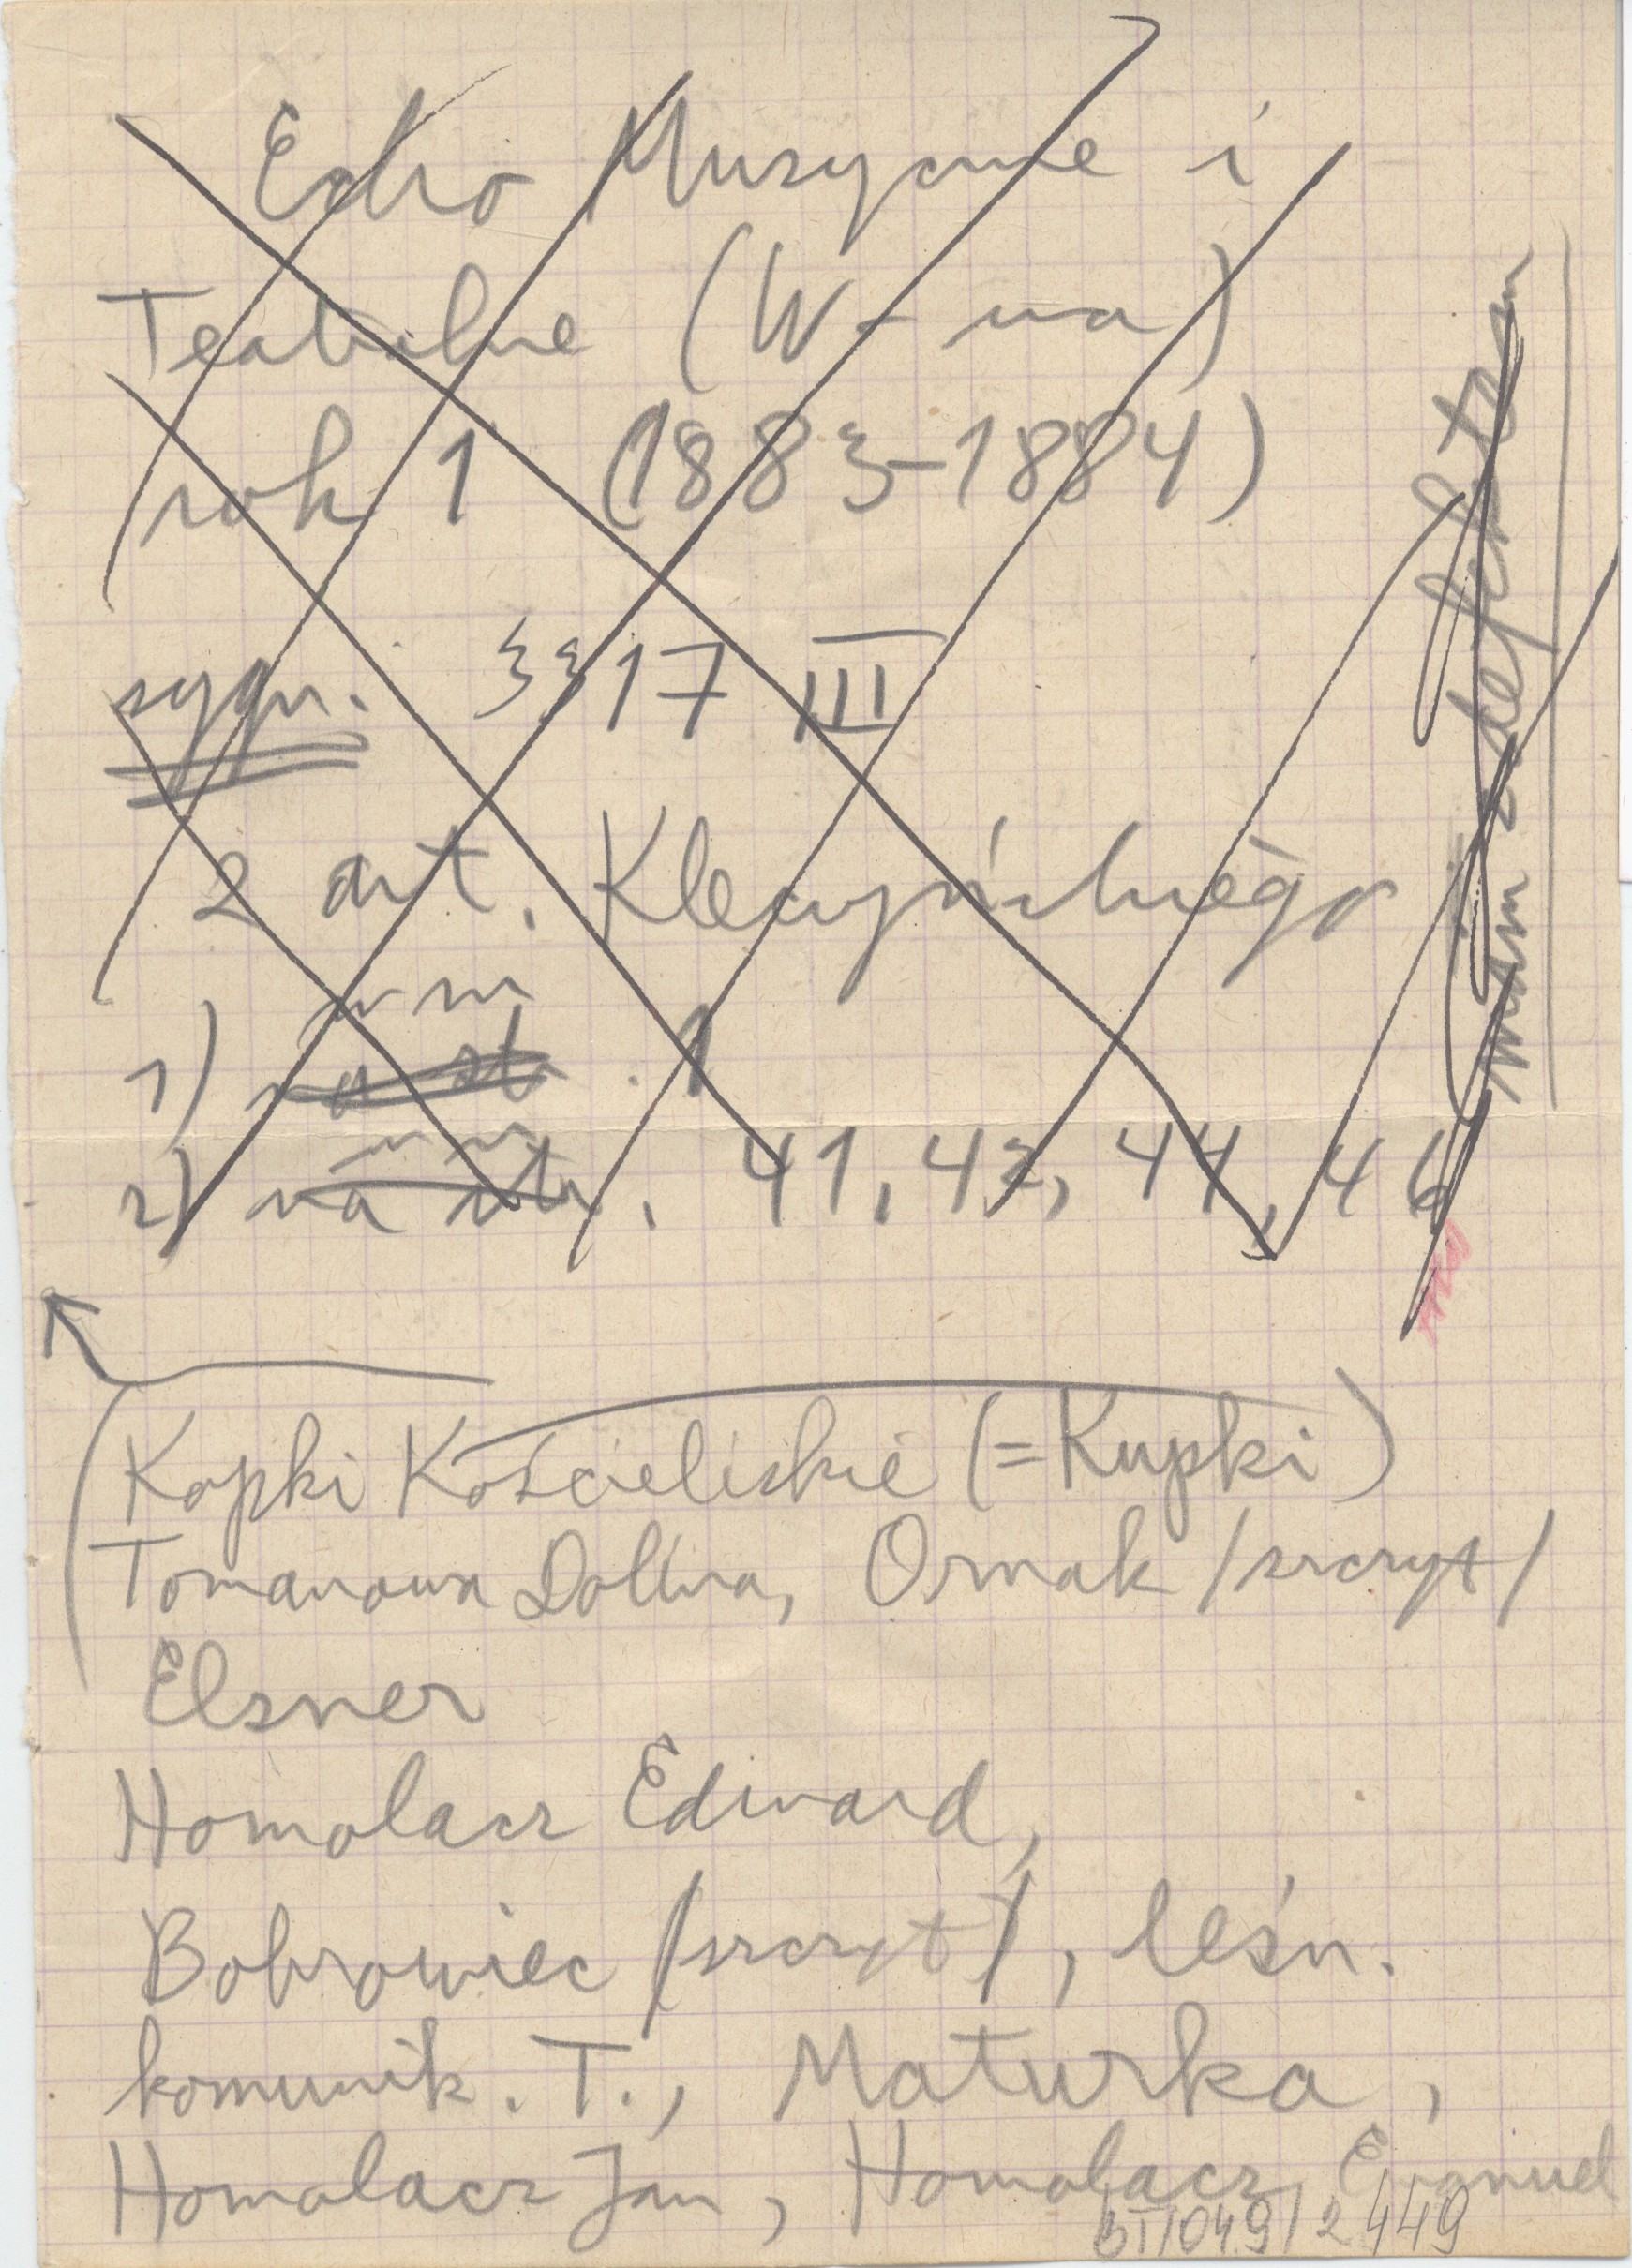 Echo Muzyczne i
Teatralne (W-wa)
rok 1 (1883-1884)
sygn. 3317 III
2 art. Kleczyńskiego
w nr
1) na str. 1
w nr
2) na str. 41, 42, 44, 46
mam z defektem
Kopki Kościeliskie (=Kupki)
Tomanowa Dolina, Ornak /szczyt/
Elsner
Homolacz Edward,
Bobrowiec /szczyt/, leśn.
komunik. T., Maturka,
Homolacz Jan, Homolacz Emanuel
BT/049/2 449